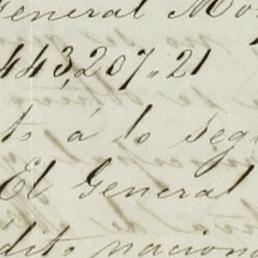 General Mo
443,207.21
to á lo segu
El General
dito nacion